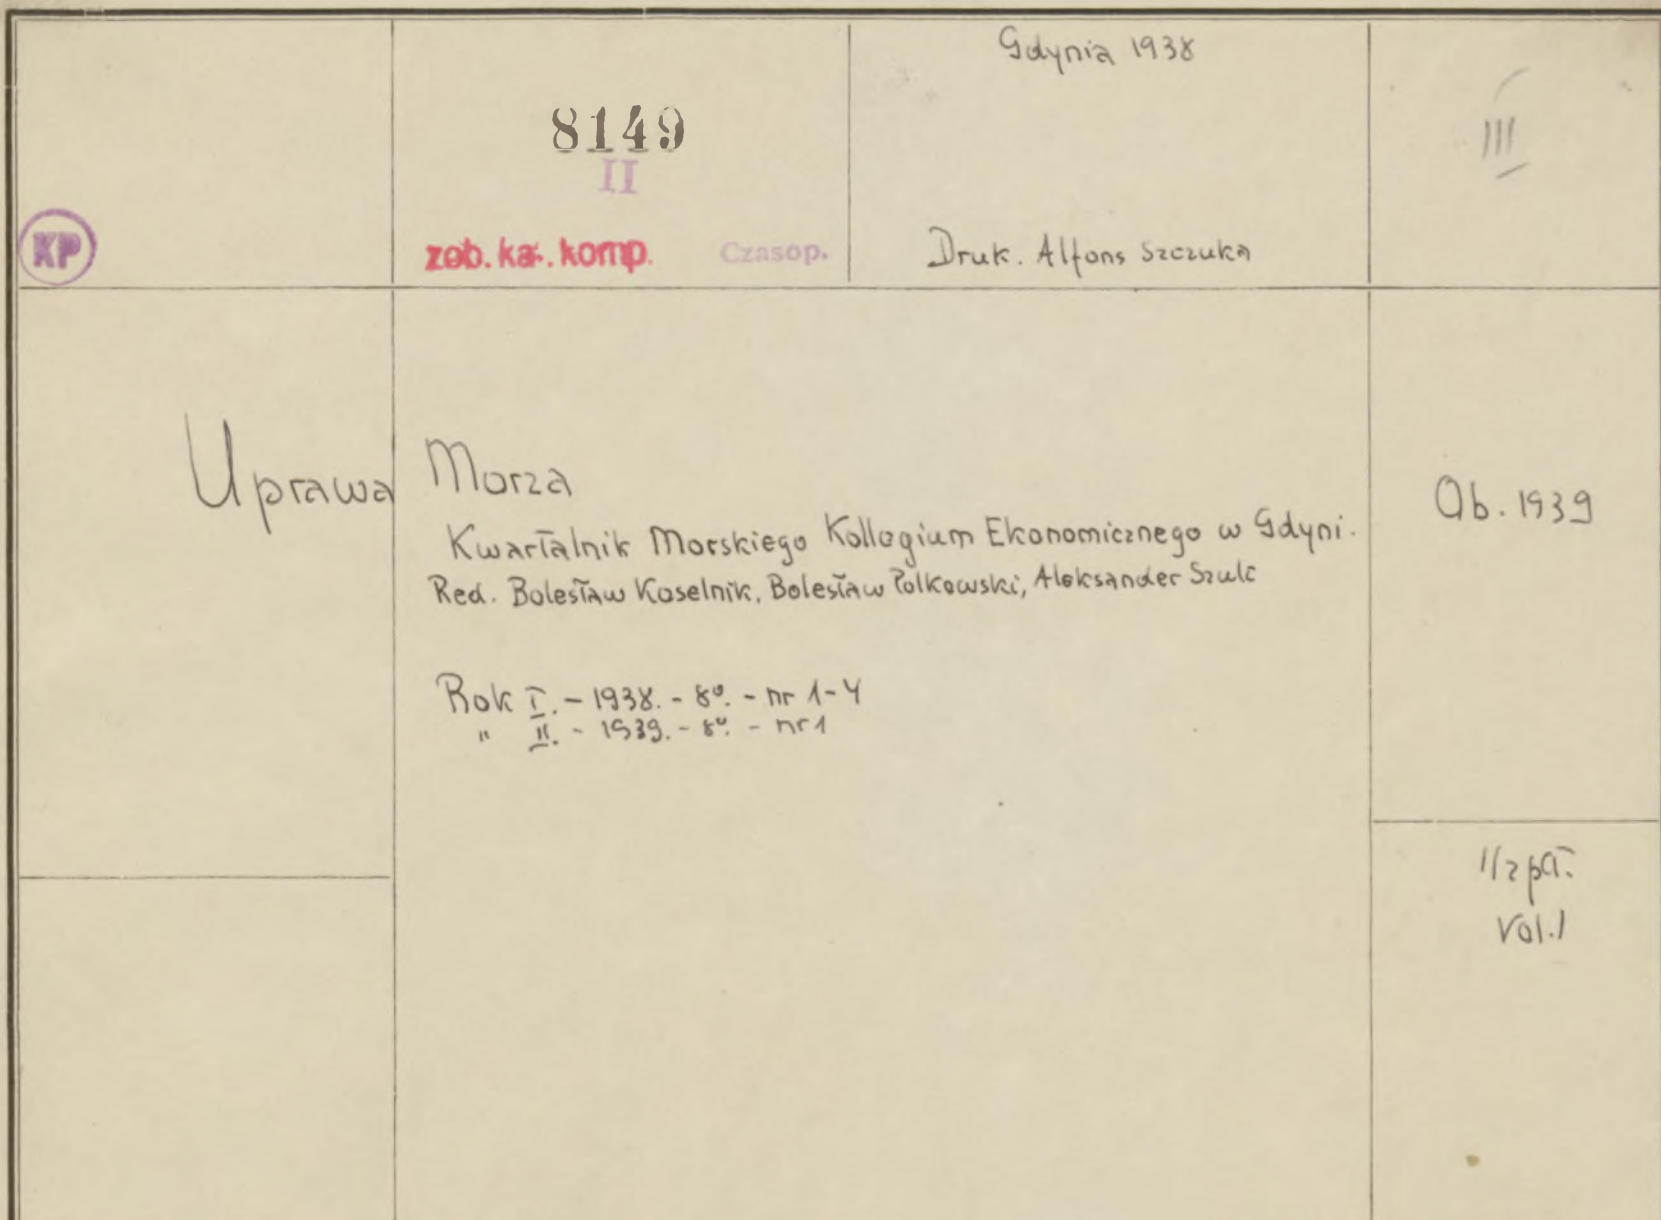 Gdynia 1938
8149
II
III
KP
zob. kat. komp. Czasop.
Druk. Alfons Szczuka
Uprawa Morza
Kwartalnik Morskiego Kollegium Ekonomicznego w Gdyni.
Red. Bolesław Koselnik, Bolesław Polkowski, Aleksander Szulc
Ab. 1939
Rok I. - 1938. - 8°. - nr 1-4
" II. - 1939. - 8°. - nr 1
1/2 pł.
Vol. 1